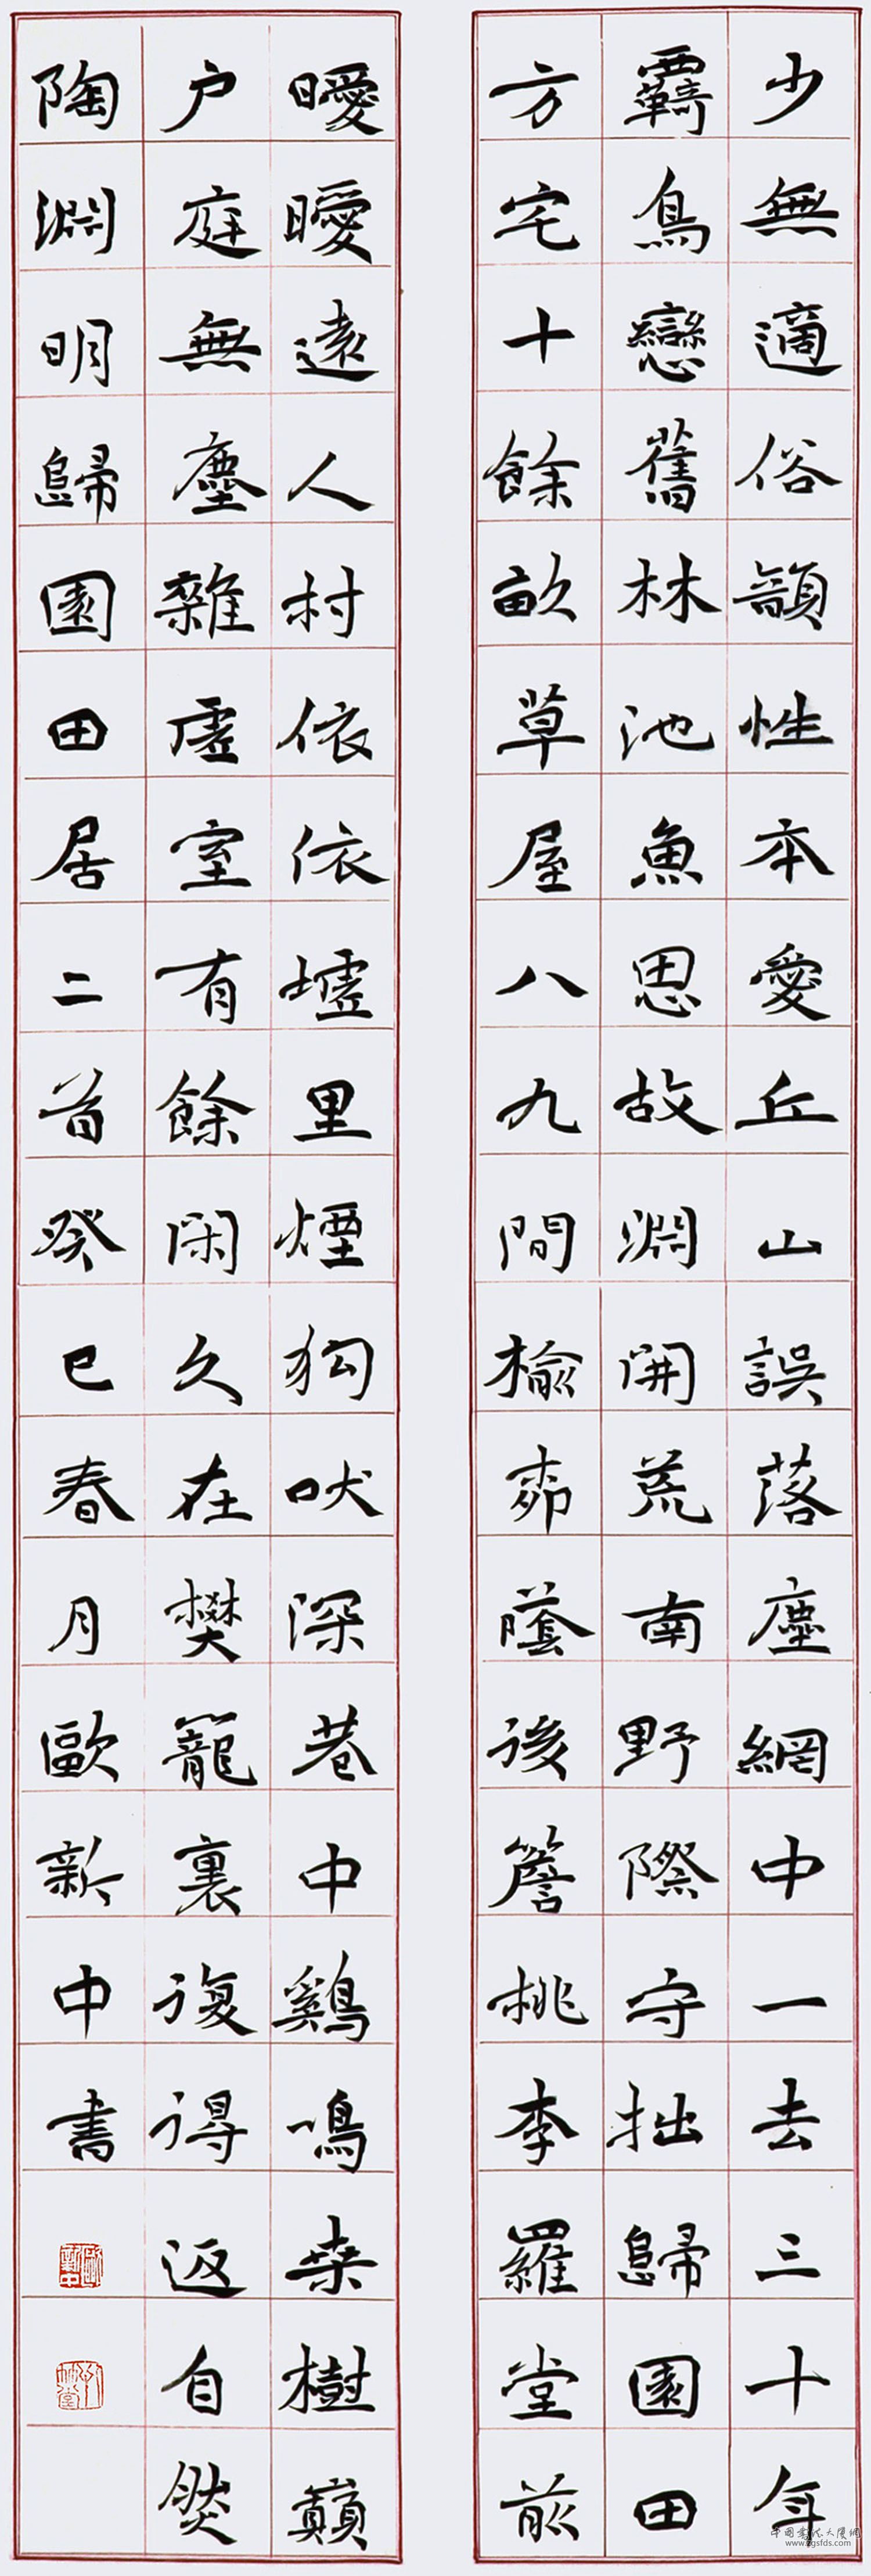 少無適俗韻性本愛丘山誤落塵網中一去三十年
覉鳥戀舊林池魚思故淵開荒南野際守拙歸園田
方宅十餘畝草屋八九間榆柳蔭後簷桃李羅堂前
曖曖遠人村依依墟里煙狗吠深巷中鷄鳴桑樹巔
户庭無塵雜虛室有餘閑久在樊籠裏復得返自然
陶淵明歸園田居二首癸巳春月歐新中書
中国書法大厦網
www.zgsfds.com